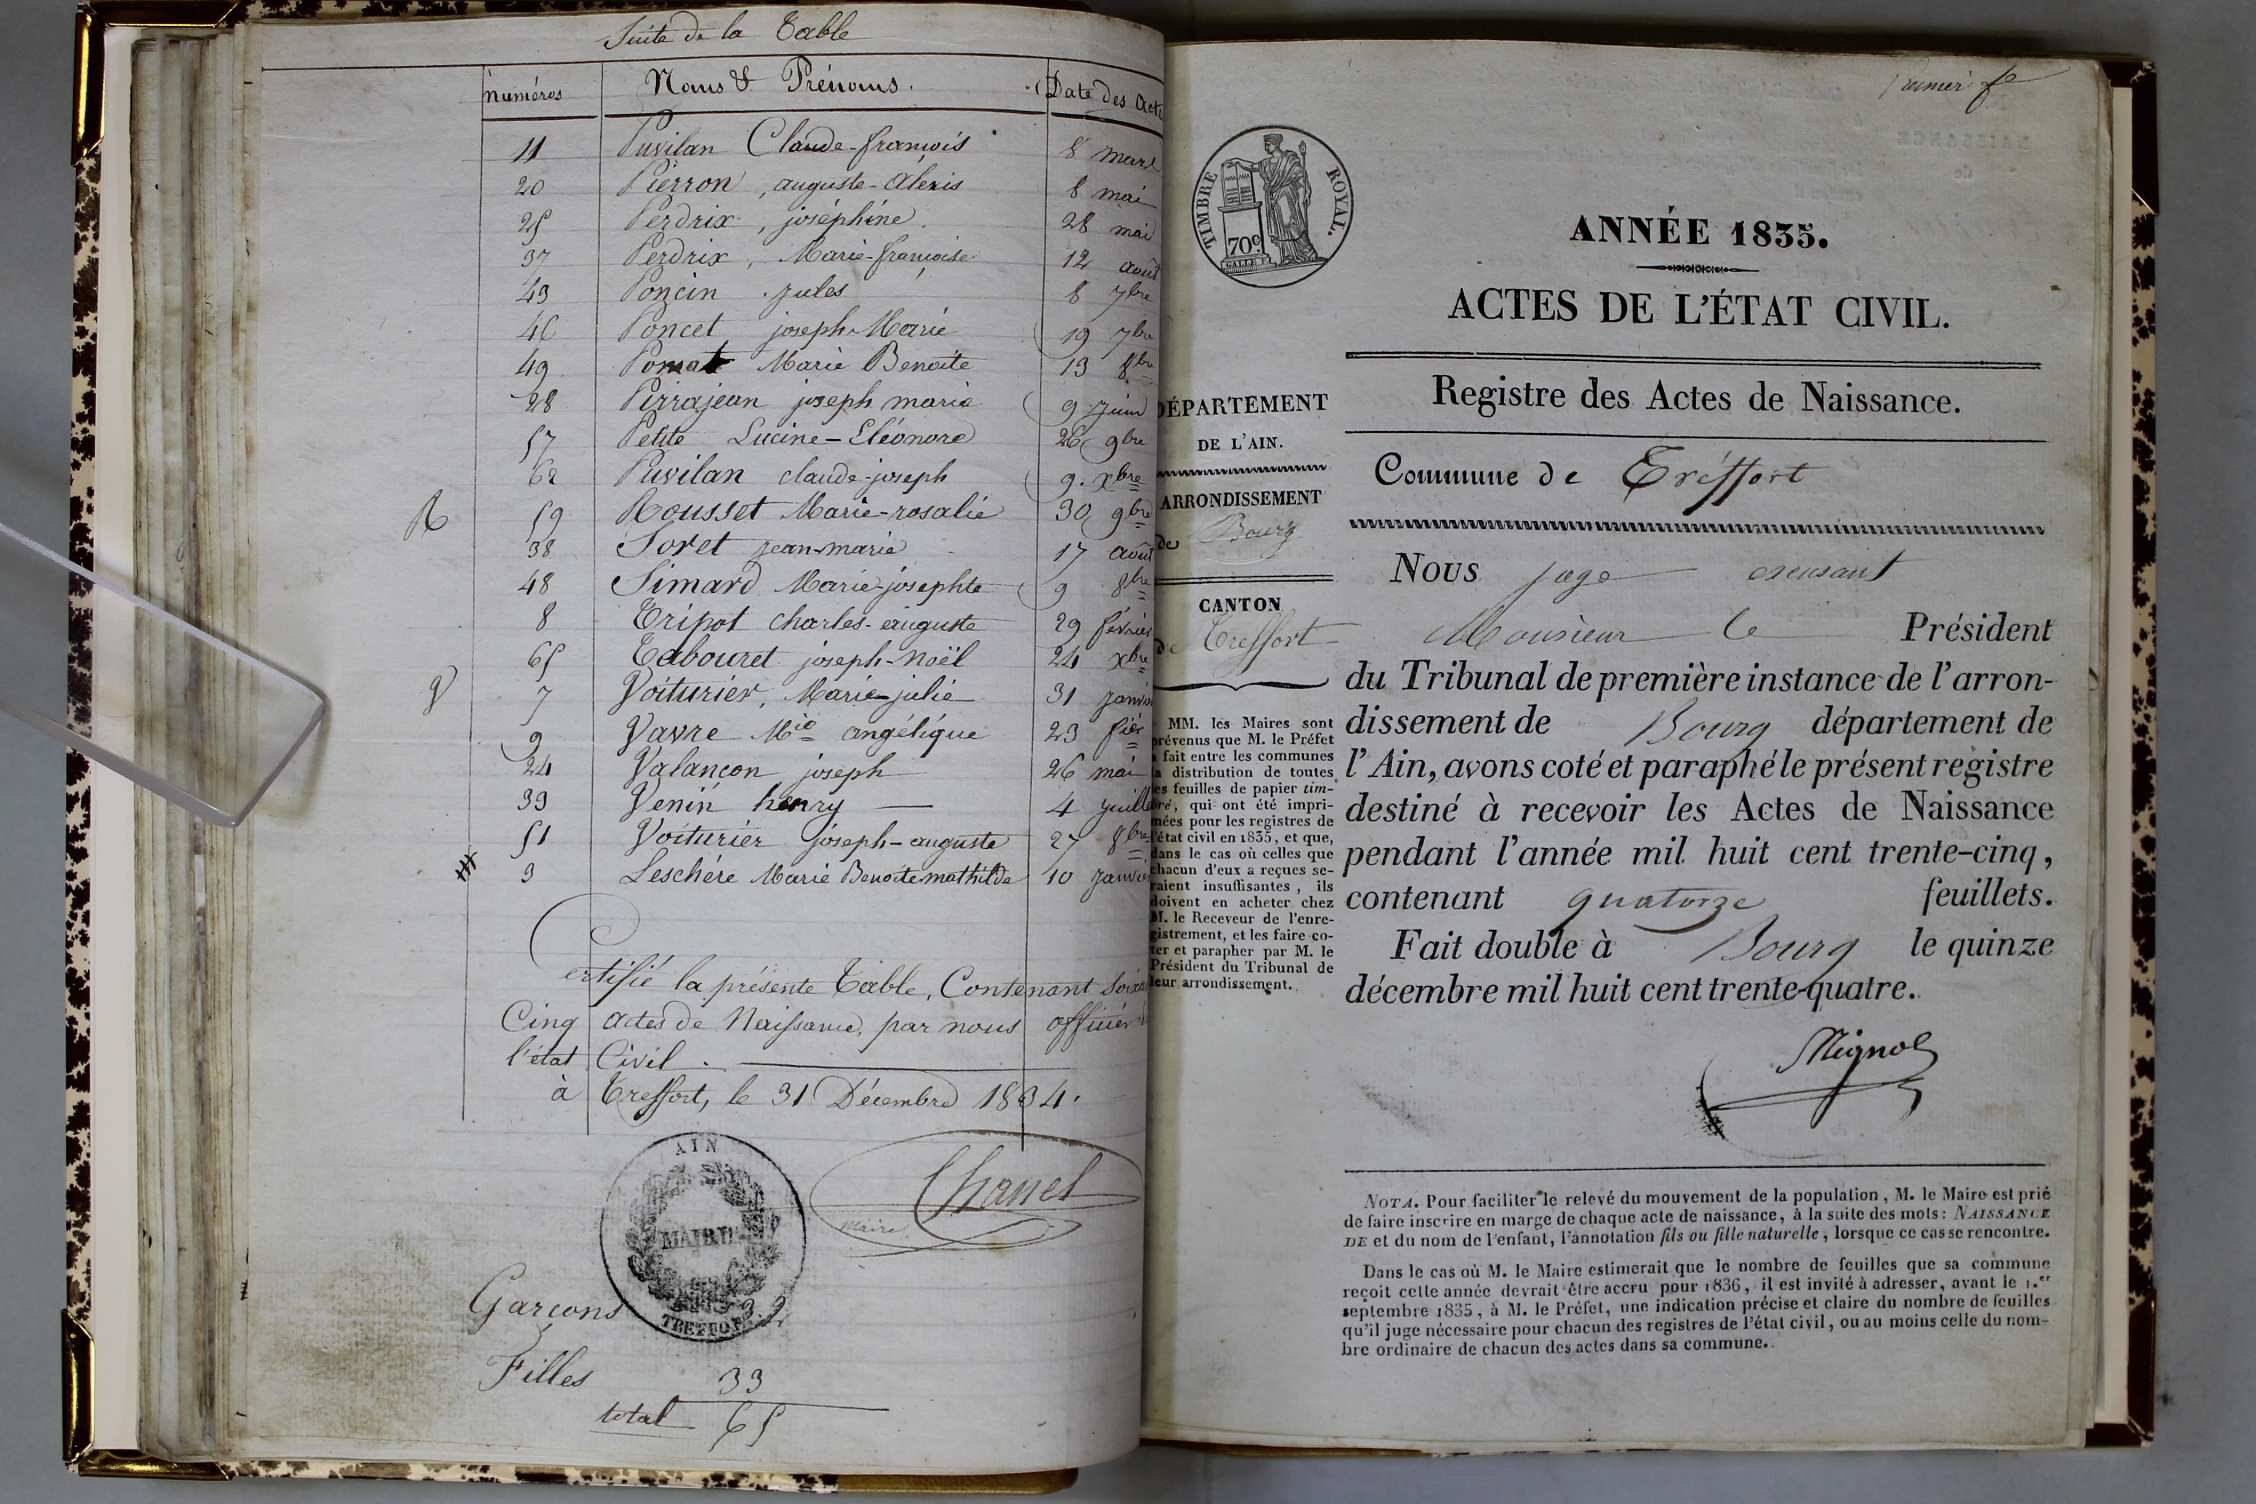 Suite de la Table
Numéros Noms & Prénoms. Date des Acte
11 Puvilan Claude-françois 8 mars
20 Pierron, auguste-alexis 8 mai
25 Perdrix, joséphine. 28 mai
37 Perdrix, Marie-françoise 12 août
43 Poncin jules 8 7bre
46 Poncet joseph-Marie 19 7bre
49 Pomat Marie Benoite 13 8bre
28 Perrajean joseph marie 9 juin
57 Petite Lucine-Eléonore 26 9bre
62 Puvilan claude-joseph 9. Xbre
R 59 Rousset Marie-rosalie 30 9bre
38 Soret jean-marie 17 août
48 Simard Marie-josephte 9 8bre
8 Tripot charles-auguste 29 février
65 Tabouret joseph-Noël 24 Xbre
V 7 Voiturier, Marie-julie 31 janvi
9 Vavre Mie angélique 23 fier
24 Valançon joseph 26 mai
33 Venin henry 4 juill
51 Voiturier joseph-auguste 27 8bre
3 Leschère Marie Benoite mathilde 10 janvie
Certifié la présente Table, Contenant Soixa
Cinq actes de Naissance, par nous officier
l'état Civil.
à Treffort, le 31 Décembre 1834.
AIN
MAIRIE
TREFFORT
Chanel
maire
Garçons 32
Filles 33
total 65
Premier fo
TIMBRE ROYAL.
70c
ANNÉE 1835.
ACTES DE L'ÉTAT CIVIL.
Registre des Actes de Naissance.
Commune de Tréffort
DÉPARTEMENT
DE L'AIN.
ARRONDISSEMENT
de Bourg
CANTON
de Treffort
MM. les Maires sont
prévenus que M. le Préfet
a fait entre les communes
la distribution de toutes
les feuilles de papier tim-
bré, qui ont été impri-
mées pour les registres de
l'état civil en 1835, et que,
dans le cas où celles que
chacun d'eux a reçues se-
raient insuffisantes, ils
doivent en acheter chez
M. le Receveur de l'enre-
gistrement, et les faire co-
ter et parapher par M. le
Président du Tribunal de
leur arrondissement.
Nous juge excusant
Monsieur le Président
du Tribunal de première instance de l'arron-
dissement de Bourg département de
l'Ain, avons coté et paraphé le présent registre
destiné à recevoir les Actes de Naissance
pendant l'année mil huit cent trente-cinq,
contenant quatorze feuillets.
Fait double à Bourg le quinze
décembre mil huit cent trente-quatre.
NOTA. Pour faciliter le relevé du mouvement de la population, M. le Maire est prié
de faire inscrire en marge de chaque acte de naissance, à la suite des mots: NAISSANCE
DE et du nom de l'enfant, l'annotation fils ou fille naturelle, lorsque ce cas se rencontre.
Dans le cas où M. le Maire estimerait que le nombre de feuilles que sa commune
reçoit cette année devrait être accru pour 1836, il est invité à adresser, avant le 1.er
septembre 1835, à M. le Préfet, une indication précise et claire du nombre de feuilles
qu'il juge nécessaire pour chacun des registres de l'état civil, ou au moins celle du nom-
bre ordinaire de chacun des actes dans sa commune.